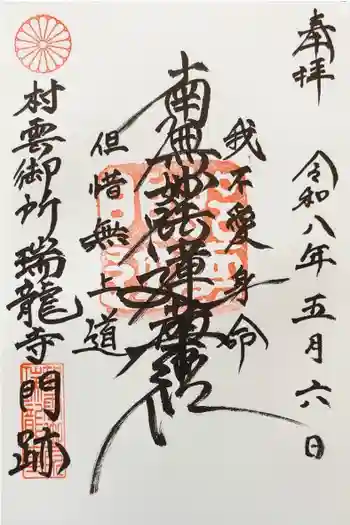 奉拝
令和八年五月六日
我不愛身命
南無妙法蓮華経
但惜無上道
村雲御所瑞龍寺門跡